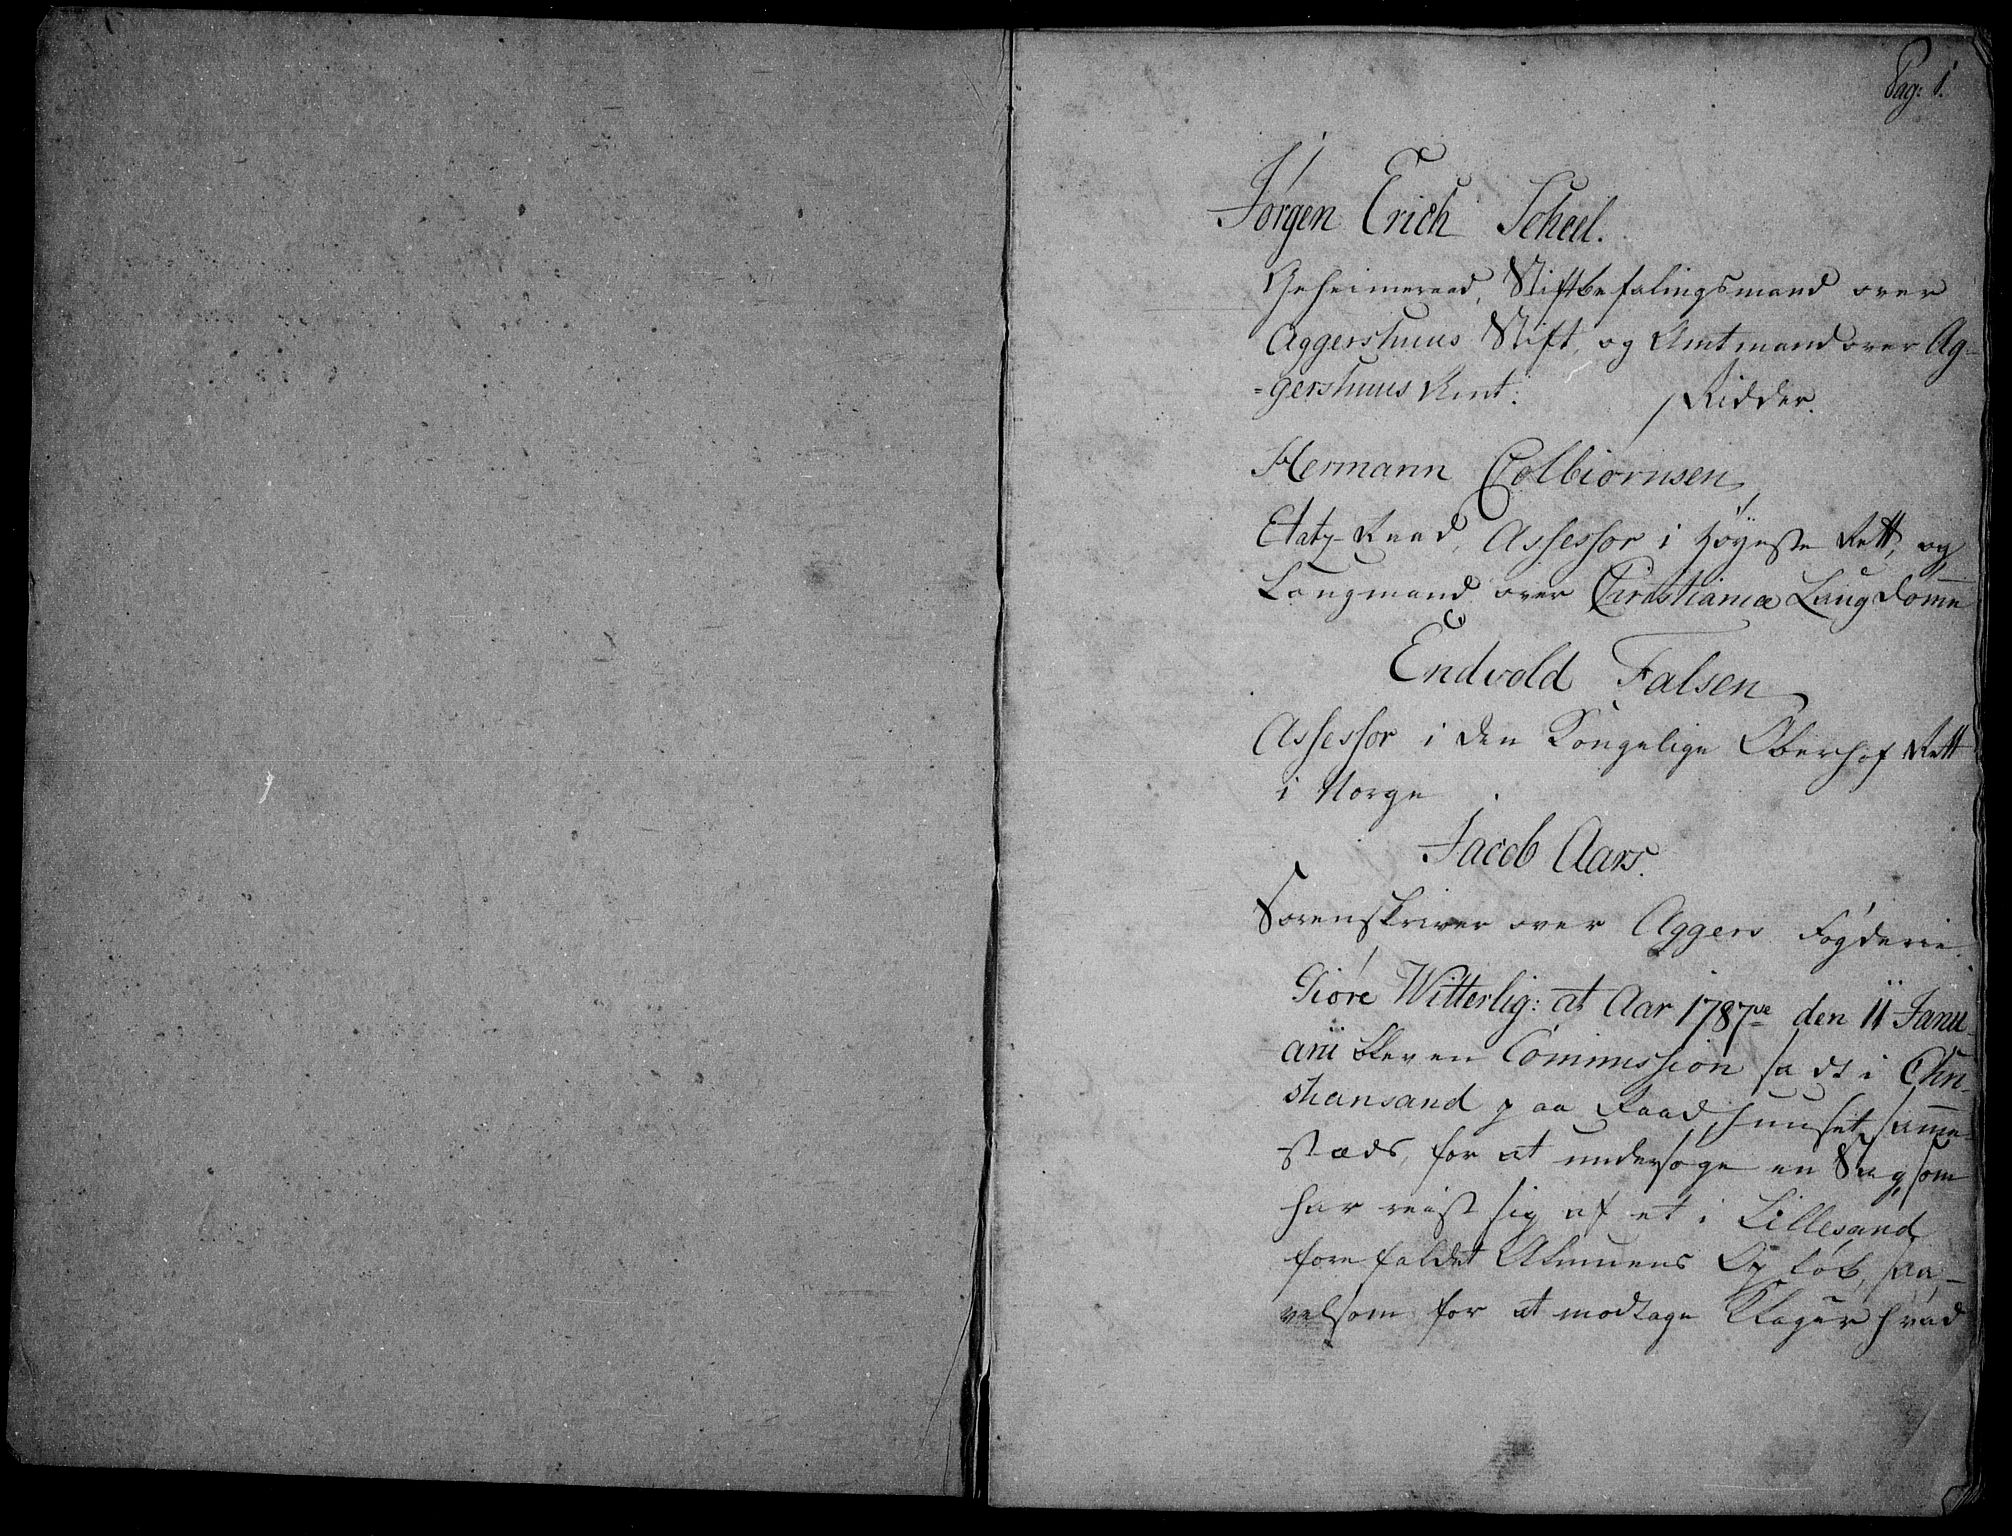 Pag: 1.
Jørgen Erich Scheel.
Geheimeraad, Stiftbefalingsmand over
Aggershuus Stift, og Amtmand over Ag-
=gershuus Amt. / Ridder.
Hermann Colbiørnsen,
Etatz-Raad, Assessor i Høyeste Rett, og
Laugmand over Christianiæ Laugdømme
Endvold Falsen
Assessor i den Kongelige Oberhof Rett
i Norge
Jacob Aars.
Sorenskriver over Aggers Fogderie.
Giøre Witterlig: at Aar 1787ve den 11 Janu-
arii blev en Commission sadt i Chri-
stiansand paa Raadhuuset samme-
stæds, for at undersøge en Sag, som
har reist sig af et i Lillesand
forefaldet Almuens Opløb, saa-
velsom for at modtage Klager hvad